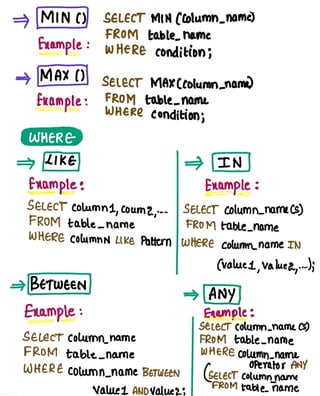 ⇒ MIN () SELECT MIN (column_name)
FROM table_name
Example : WHERE condition;
⇒ MAX () SELECT MAX(column_name)
Example : FROM table_name
WHERE condition;
WHERE
⇒ LIKE
Example :
SELECT column1, coum2,...
FROM table_name
WHERE columnN LIKE Pattern
⇒ IN
Example :
SELECT column_name(s)
FROM table_name
WHERE column_name IN
(value1, value2,...);
⇒ BETWEEN
Example :
SELECT column_name
FROM table_name
WHERE column_name BETWEEN
value1 AND value2;
⇒ ANY
Example :
SELECT column_name(s)
FROM table_name
WHERE column_name
operator ANY
(SELECT column_name
FROM table_name